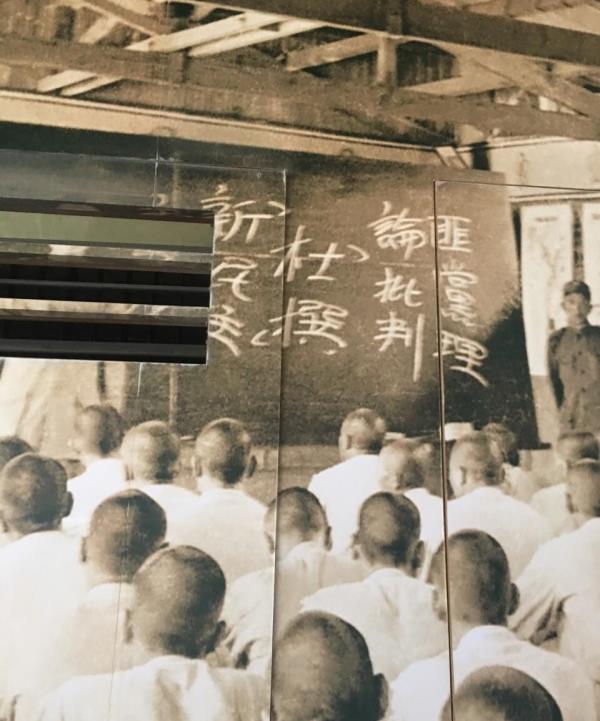 匪黨理
論批判
杜撰
新民